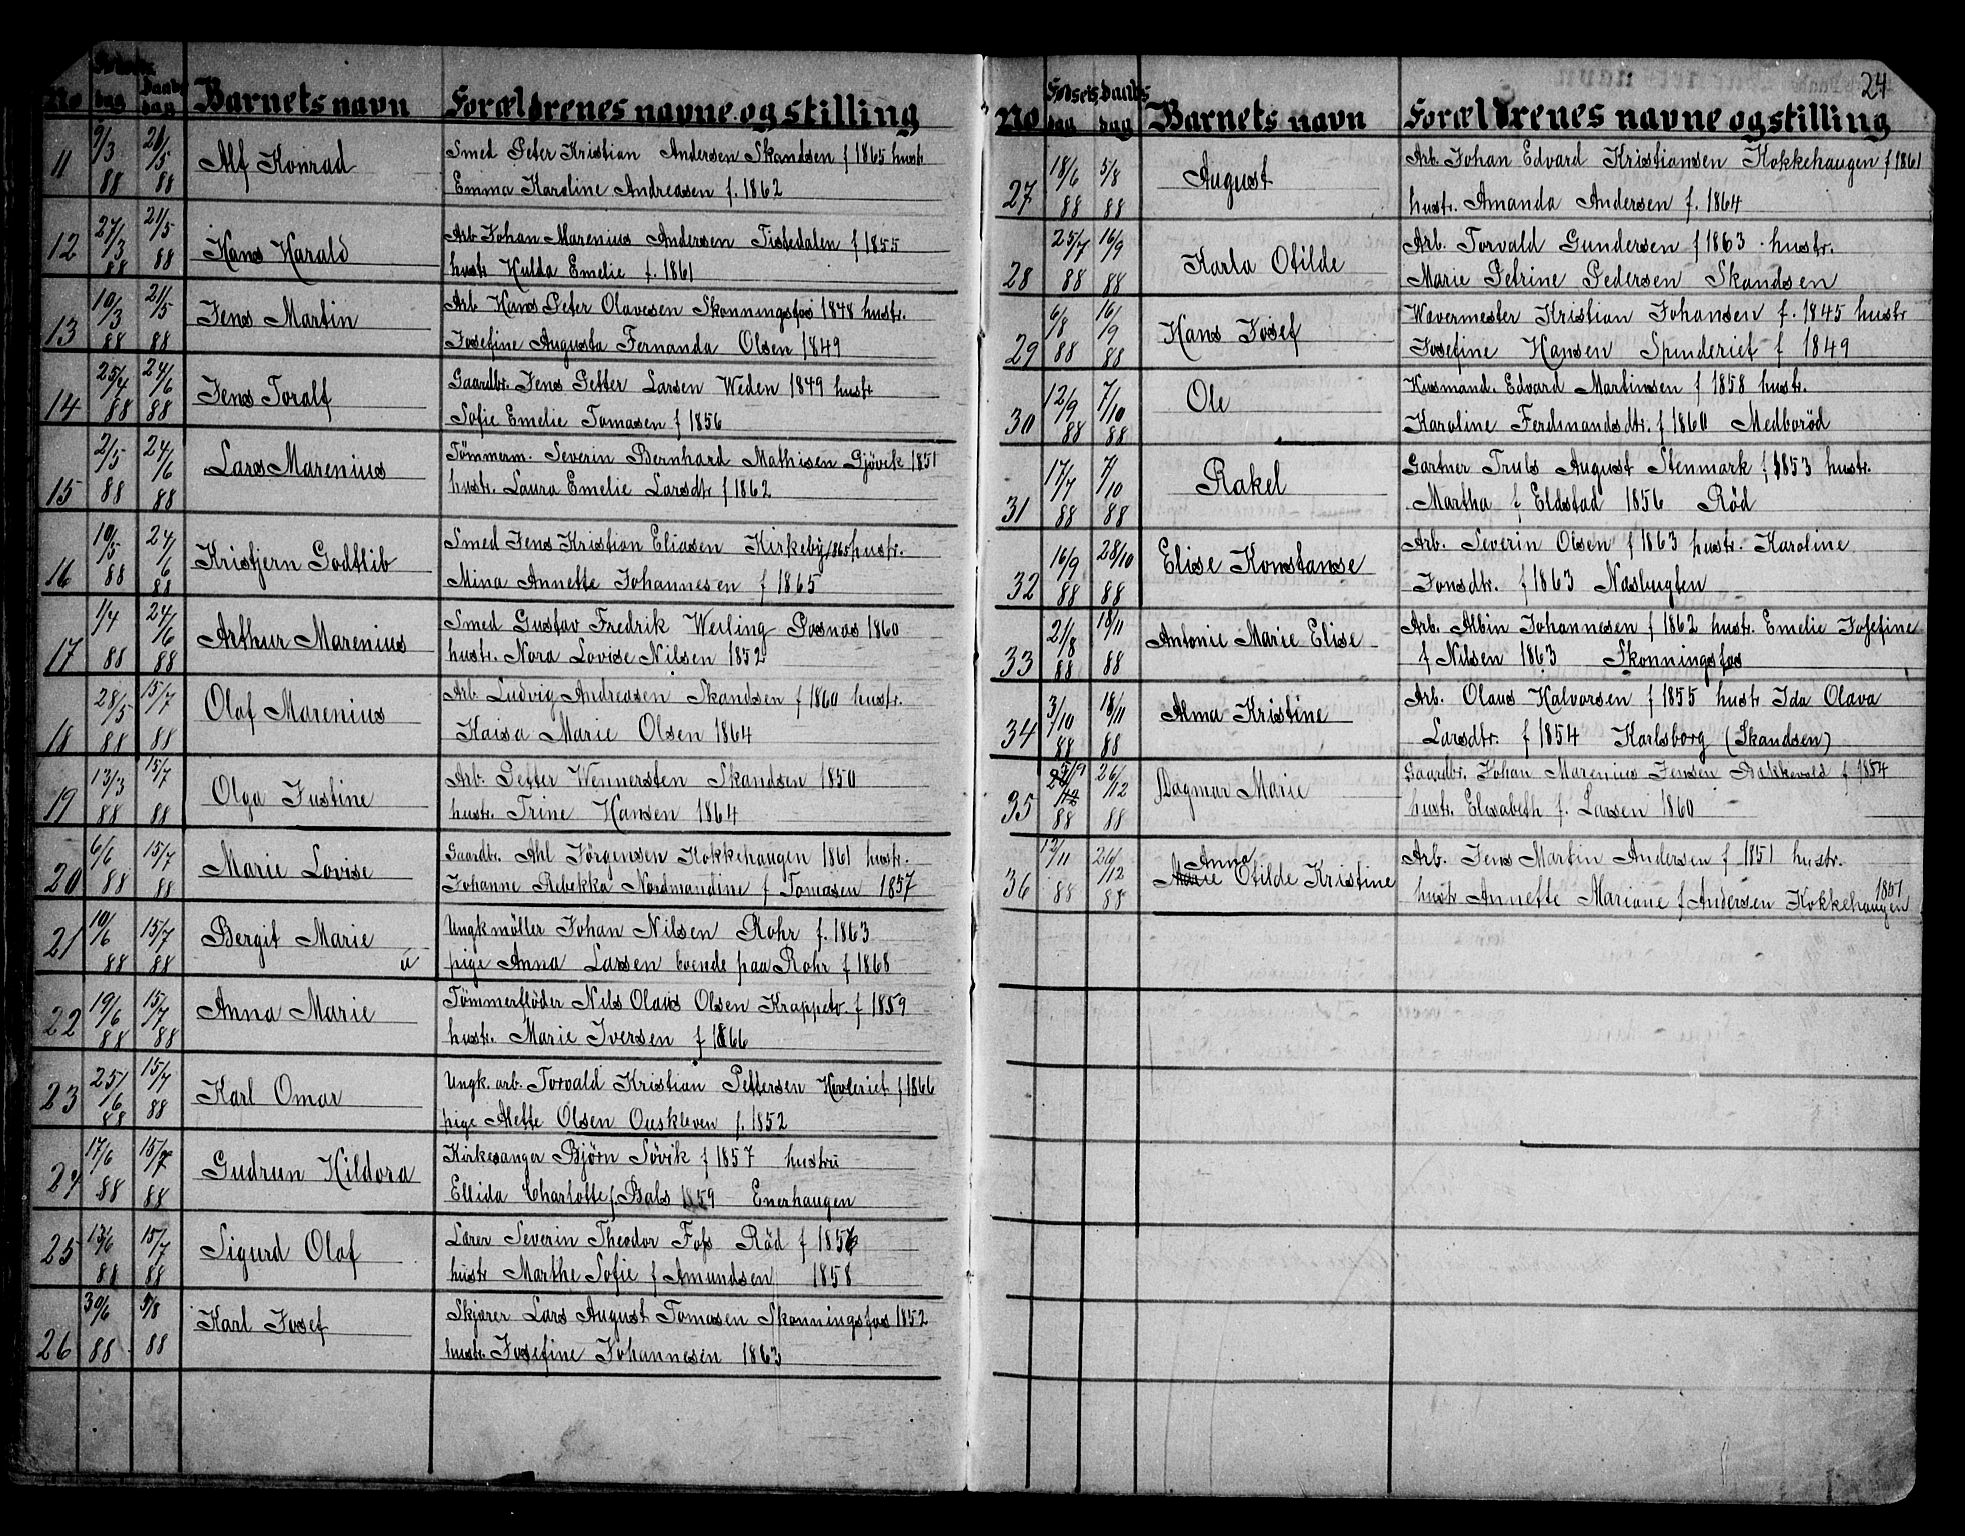 No Fødsels dag Daabs dag Barnets navn Forældrenes navne og stilling
11 9/3 88 21/5 88 Alf Konrad Smed Peter Kristian Andersen Skandsen f 1865 hustr.
Emma Karoline Andreasen f. 1862
12 27/3 88 21/5 88 Hans Harald Arb Johan Marenius Andersen Tistedalen f 1855
hustr Hulda Emelie f. 1861
13 10/3 88 21/5 88 Jens Martin Arb Hans Peter Olavesen Skonningsfos 1848 hustr.
Josefine Augusta Fernanda Olsen 1849
14 25/4 88 24/6 88 Jens Toralf Gaardbr. Jens Petter Larsen Weden 1849 hustr
Sofie Emelie Tomasen f 1856
15 2/5 88 24/6 88 Lars Marenius Tömmerm. Severin Bernhard Mathisen Gjövik 1851
hustr. Laura Emelie Larsdtr f 1862
16 10/5 88 24/6 88 Kristjern Godtlib Smed Jens Kristian Eliasen Kirkeby 1865 hustr.
Mina Annette Johannesen f 1865
17 1/4 88 24/6 88 Arthur Marenius Smed Gustav Fredrik Weiling Posnas 1860
hustr. Nora Lovise Nilsen 1852
18 28/5 88 15/7 88 Olaf Marenius Arb. Ludvig Andreasen Skandsen f 1860 hustr.
Kaisa Marie Olsen 1864
19 13/3 88 15/7 88 Olga Justine Arb. Petter Wennersten Skandsen 1850
hustr. Trine Hansen 1864
20 6/6 88 15/7 88 Marie Lovise Gaardbr. Ahl Jörgensen Kokkehaugen 1861 hustr.
Johanne Rebekka Nordmandine f Tomasen 1857
21 10/6 88 15/7 88 Bergit Marie u Ungk møller Johan Nilsen Rohr f. 1863
pige Anna Larsen boende paa Rohr f 1868
22 19/6 88 15/7 88 Anna Marie Tömmerflöder Nils Olaus Olsen Krappetr. f 1859
hustr. Marie Iversen f 1866
23 25/6 88 15/7 88 Karl Omar Ungk. arb. Torvald Kristian Pettersen Hovleriet f 1866
pige Alette Olsen Ouskleven f. 1852
24 17/6 88 15/7 88 Gudrun Hildora Kirkesanger Bjørn Søvik f 1857 hustru
Ellida Charlotte f. Bals 1859 Enerhaugen
25 13/6 88 15/7 88 Sigurd Olaf Lærer Severin Theodor Foss Rød f 1856
hustr Marthe Sofie f Amundsen 1858
26 30/6 88 5/8 88 Karl Josef Skjærer Lars August Tomasen Skonningsfos 1852
hustr. Josefine Johannesen 1863
24
No Fødsels dag Daabs dag Barnets navn Forældrenes navne og stilling
27 18/6 88 5/8 88 August Arb. Johan Edvard Kristiansen Kokkehaugen f 1861
hustr. Amanda Andersen f. 1864
28 25/7 88 16/9 88 Karla Otilde Arb. Torvald Gundersen f 1863 hustr.
Marie Petrine Pedersen Skandsen
29 6/8 88 16/9 88 Hans Josef Wævermester Kristian Johansen f. 1845 hustr
Josefine Hansen Spinderiet f 1849
30 12/9 88 7/10 88 Ole Husmand. Edvard Martinsen f 1858 hustr.
Karoline Ferdinandsdtr. f 1860 Medbøröd
31 17/7 88 7/10 88 Rakel Gartner Truls August Stenmark f 1853 hustr.
Martha f Eldstad 1856 Rød
32 16/9 88 28/10 88 Elise Konstanse Arb. Severin Olsen f 1863 hustr. Karoline
Jonsdtr. f 1863 Næsbugten
33 21/8 88 18/11 88 Antonie Marie Elise Arb. Albin Johannesen f 1862 hustr. Emelie Josefine
f Nilsen 1863 Skonningsfos
34 3/10 88 18/11 88 Alma Kristine Arb. Olaus Halvorsen f 1855 hustr Ida Olava
Larsdtr. f 1854 Karlsborg (Skandsen)
35 88 26/12 88 Dagmar Marie Gaardbr. Johan Marenius Jensen Bakkevold f 1854
hustr. Elisabeth f. Larsen 1860
36 12/11 88 26/12 88 Anna Otilde Kristine Arb. Jens Martin Andersen f 1851 hustr.
hustr Annette Mariane f Andersen Kokkehaugen 1851